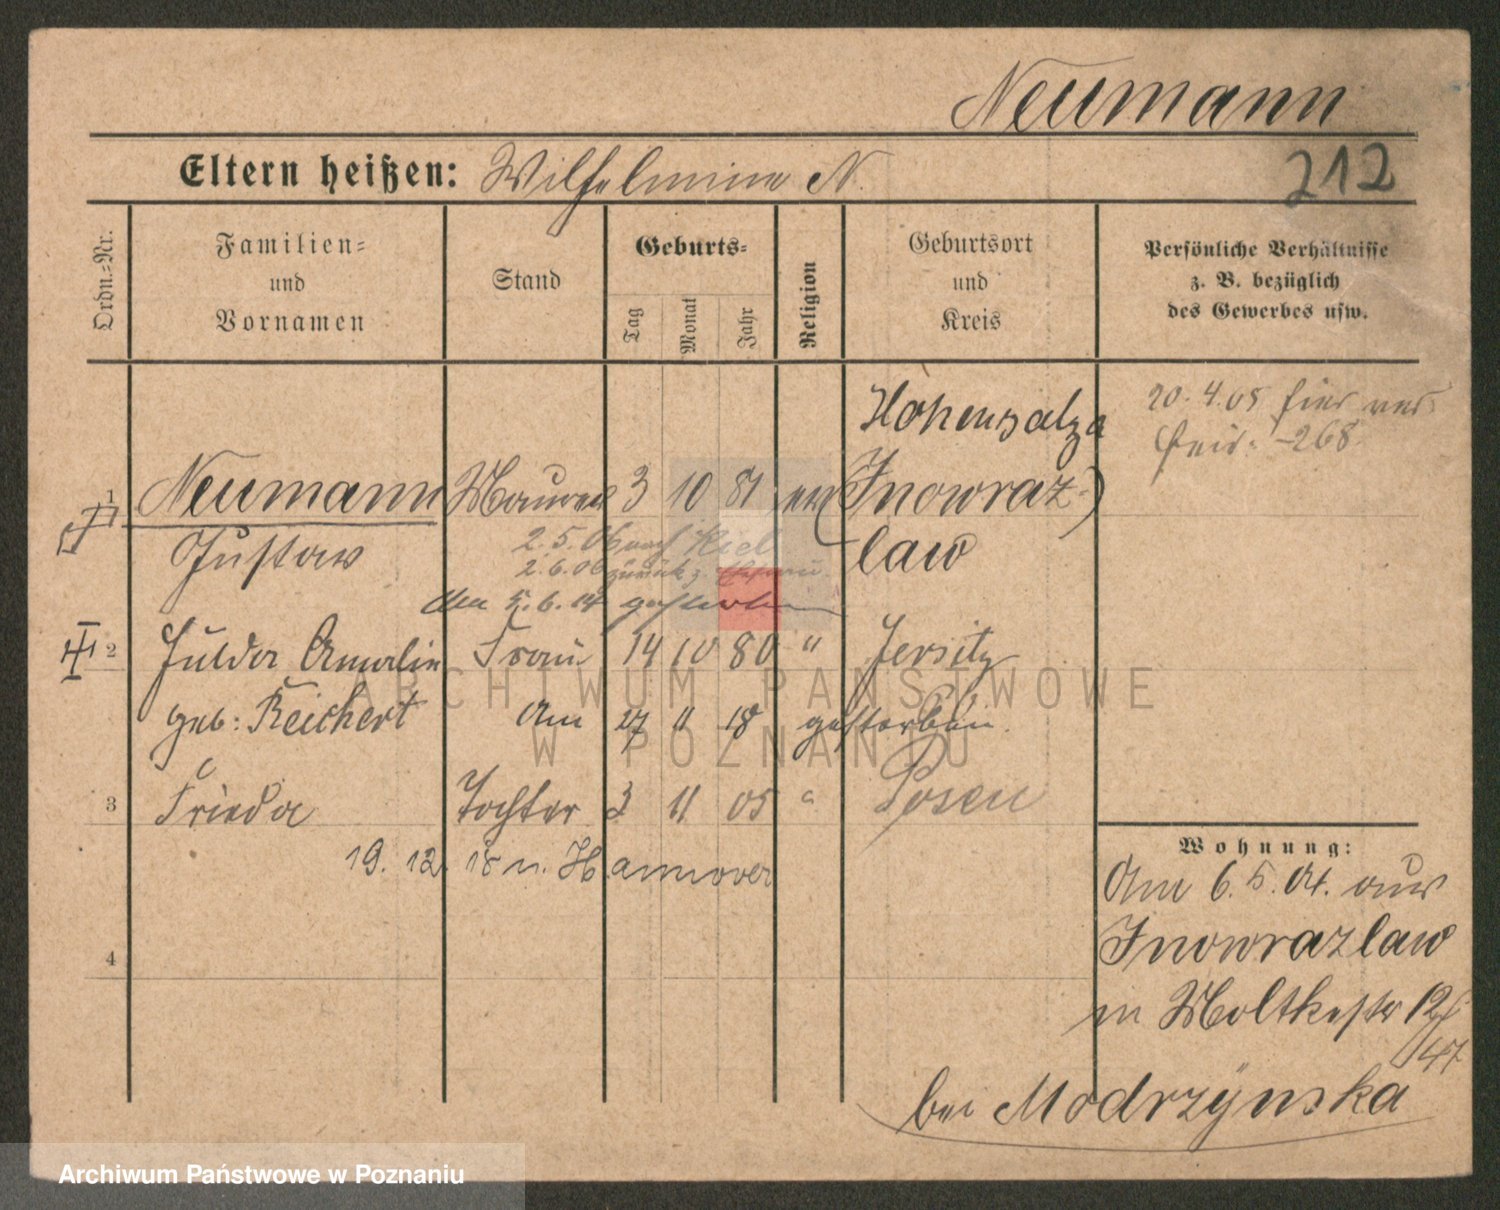 Neumann
Eltern heißen: Wilhelmine N.
212
Ordn.-Nr.
Familien-
und
Vornamen
Stand
Geburts-
Tag
Monat
Jahr
Religion
Geburtsort
und
Kreis
Persönliche Verhältnisse
z. B. bezüglich
des Gewerbes usw.
Hohensalza
20.4.05 hier ver-
heir: -268.
1 Neumann Maurer 3 10 81 ev. (Inowraz-)
Gustav law
2.5.06 nach Kiel
2.6.06 zurück z.
den 5.6.14 gestorben
2 Hulda Amalie Frau 14 10 80 " Jersitz
geb: Reichert Am 27 " 18 gestorben.
3 Frieda Tochter 3 11 05 " Posen
19. 12. 18 n. Hannover
4
Wohnung:
Am 6.5.04. aus
Inowrazlaw
in Moltkestr 12/
47
bei Modrzynska
ARCHIWUM PAŃSTWOWE
W POZNANIU
Archiwum Państwowe w Poznaniu